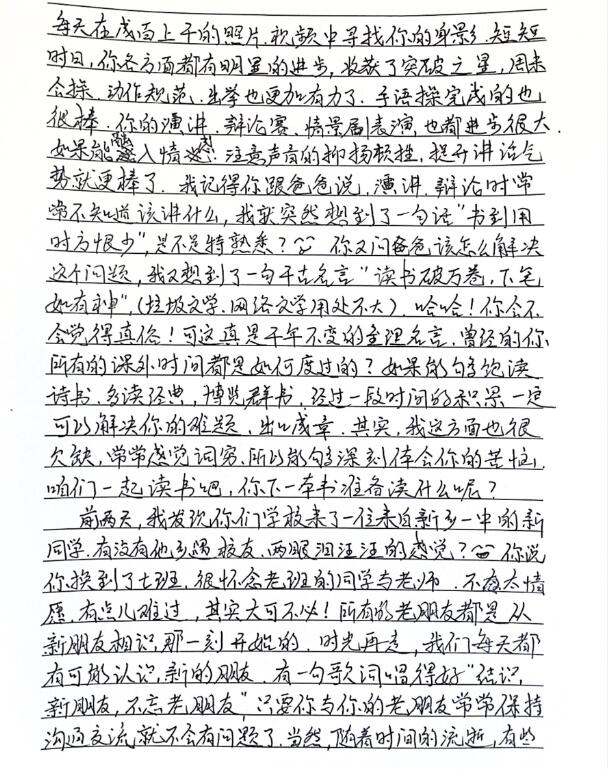 每天在成百上千的照片、视频中寻找你的身影。短短
时日,你各方面都有明显的进步,收获了突破之星,周末
会操,动作规范,出拳也更加有力了。手语操完成的也
很棒。你的演讲、辩论赛、情景剧表演,也都进步很大。
如果能融入情感,注意声音的抑扬顿挫,提升讲话气
势就更棒了。我记得你跟爸爸说,演讲、辩论时常
常不知道该讲什么,我就突然想到了一句话"书到用
时方恨少",是不是特熟悉?你又问爸爸该怎么解决
这个问题,我又想到了一句千古名言"读书破万卷,下笔
如有神",(垃圾文学、网络文学用处不大)。哈哈!你会不
会觉得真俗!可这真是千年不变的至理名言,曾经的你,
所有的课外时间都是如何度过的?如果能够多饱读
诗书,多读经典,博览群书,经过一段时间的积累一定
可以解决你的难题,出口成章。其实,我这方面也很
欠缺,常常感觉词穷,所以能够深刻体会你的苦恼,
咱们一起读书吧,你下一本书准备读什么呢?
前两天,我发现你们学校来了一位来自新乡一中的新
同学,有没有他乡遇校友,两眼泪汪汪的感觉?你说
你换到了七班,很怀念老班的同学与老师,不太情
愿,有点儿难过,其实大可不必!所有的老朋友都是从
新朋友相识那一刻开始的,时光再走,我们每天都
有可能认识新的朋友,有一句歌词唱得好"结识
新朋友,不忘老朋友",只要你与你的老朋友常常保持
沟通交流就不会有问题了。当然,随着时间的流逝,有些